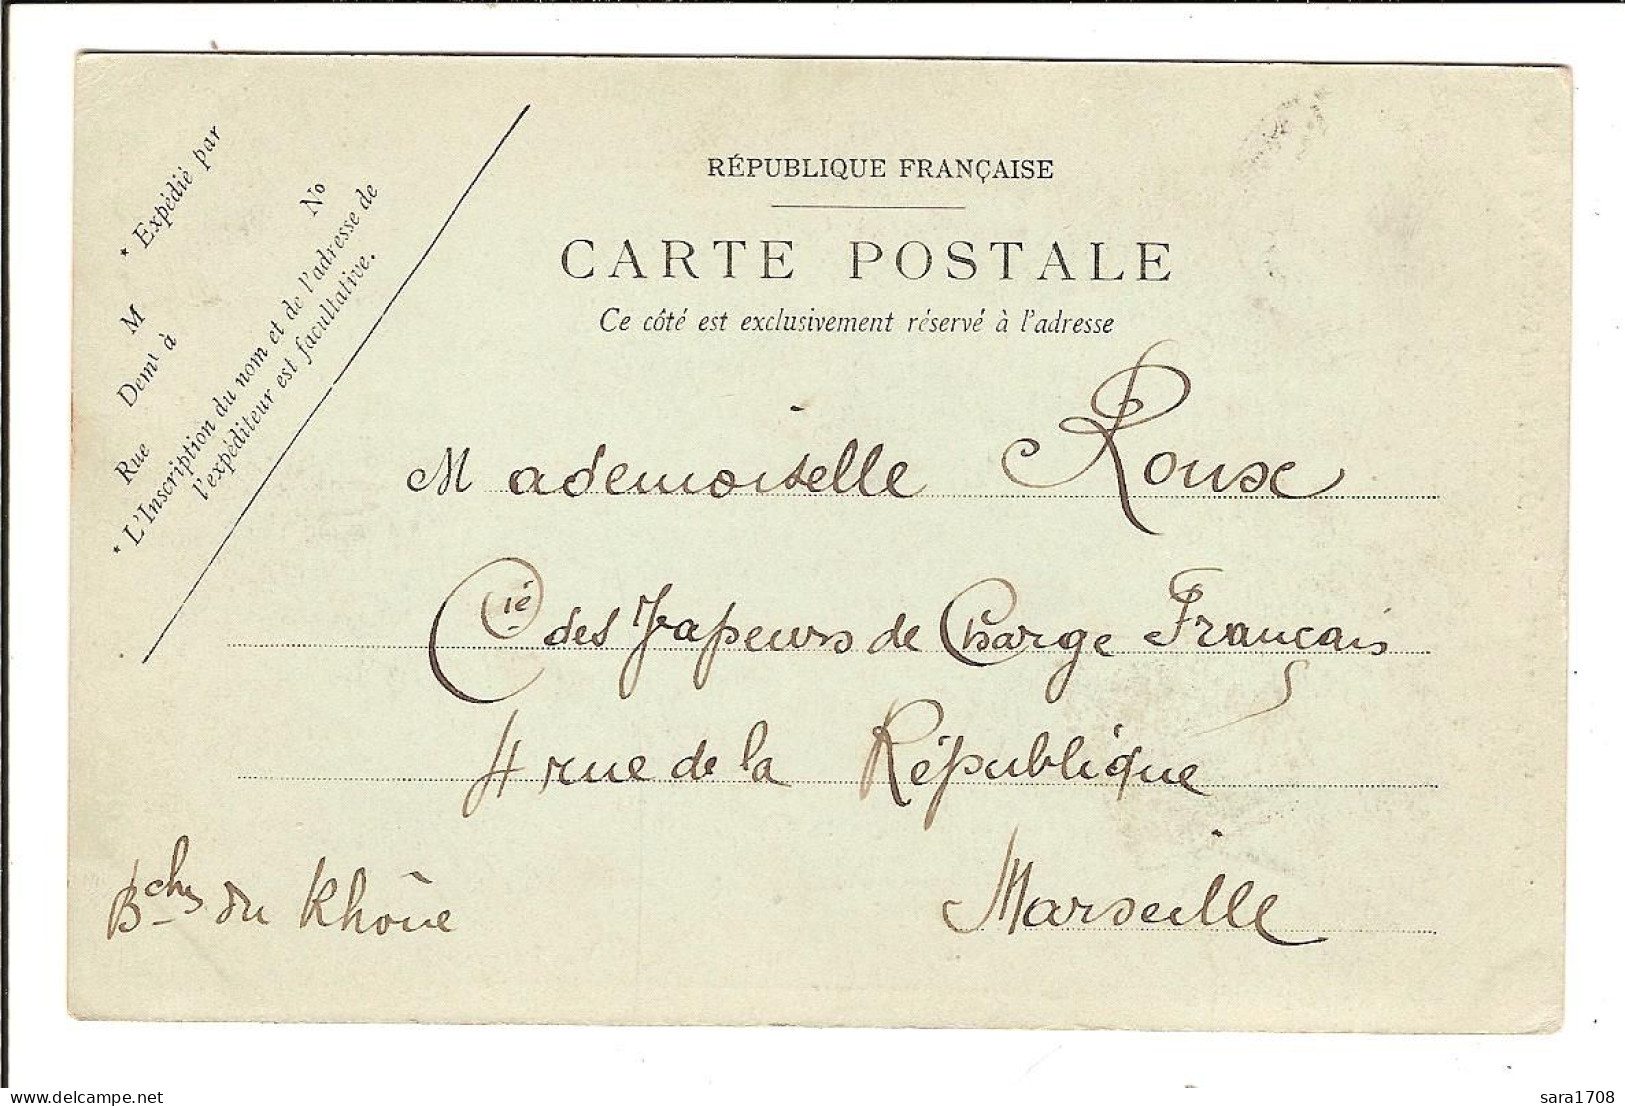 * Expédié par
M
Demt à
Rue No
* L'Inscription du nom et de l'adresse de
l'expéditeur est facultative.
RÉPUBLIQUE FRANÇAISE
CARTE POSTALE
Ce côté est exclusivement réservé à l'adresse
Mademoiselle Roux
Cie des Vapeurs de Charge Français
4 rue de la République
Marseille
Bches du Rhône
sara1708